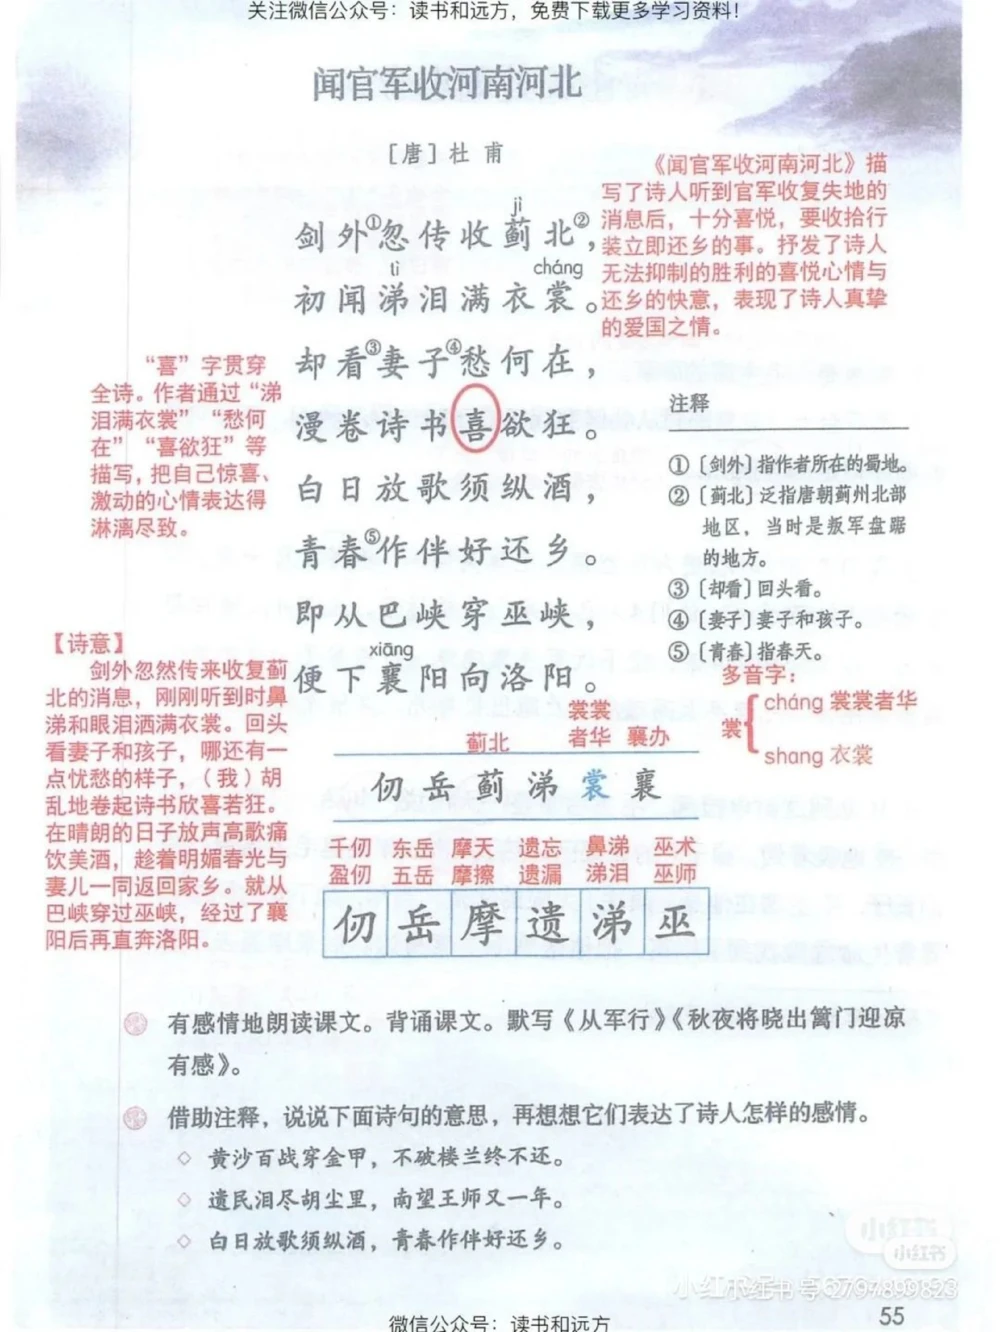 关注微信公众号：读书和远方，免费下载更多学习资料！
闻官军收河南河北
［唐］杜 甫
jì
剑外①忽传收蓟北②，
tì
cháng
初闻涕泪满衣裳。
却看③妻子④愁何在，
漫卷诗书喜欲狂。
白日放歌须纵酒，
青春⑤作伴好还乡。
即从巴峡穿巫峡，
xiāng
便下襄阳向洛阳。
《闻官军收河南河北》描
写了诗人听到官军收复失地的
消息后，十分喜悦，要收拾行
装立即还乡的事。抒发了诗人
无法抑制的胜利的喜悦心情与
还乡的快意，表现了诗人真挚
的爱国之情。
“喜”字贯穿
全诗。作者通过“涕
泪满衣裳”“愁何
在”“喜欲狂”等
描写，把自己惊喜、
激动的心情表达得
淋漓尽致。
注释
①［剑外］指作者所在的蜀地。
②［蓟北］泛指唐朝蓟州北部
地区，当时是叛军盘踞
的地方。
③［却看］回头看。
④［妻子］妻子和孩子。
⑤［青春］指春天。
多音字：
裳
cháng 裳裳者华
shang 衣裳
【诗意】
剑外忽然传来收复蓟
北的消息，刚刚听到时鼻
涕和眼泪洒满衣裳。回头
看妻子和孩子，哪还有一
点忧愁的样子，（我）胡
乱地卷起诗书欣喜若狂。
在晴朗的日子放声高歌痛
饮美酒，趁着明媚春光与
妻儿一同返回家乡。就从
巴峡穿过巫峡，经过了襄
阳后再直奔洛阳。
裳裳
蓟北 者华 襄办
仞 岳 蓟 涕 裳 襄
千仞 东岳 摩天 遗忘 鼻涕 巫术
盈仞 五岳 摩擦 遗漏 涕泪 巫师
仞 岳 摩 遗 涕 巫
有感情地朗读课文。背诵课文。默写《从军行》《秋夜将晓出篱门迎凉
有感》。
借助注释，说说下面诗句的意思，再想想它们表达了诗人怎样的感情。
◇ 黄沙百战穿金甲，不破楼兰终不还。
◇ 遗民泪尽胡尘里，南望王师又一年。
◇ 白日放歌须纵酒，青春作伴好还乡。
小红书
小红书
55
微信公众号：读书和远方